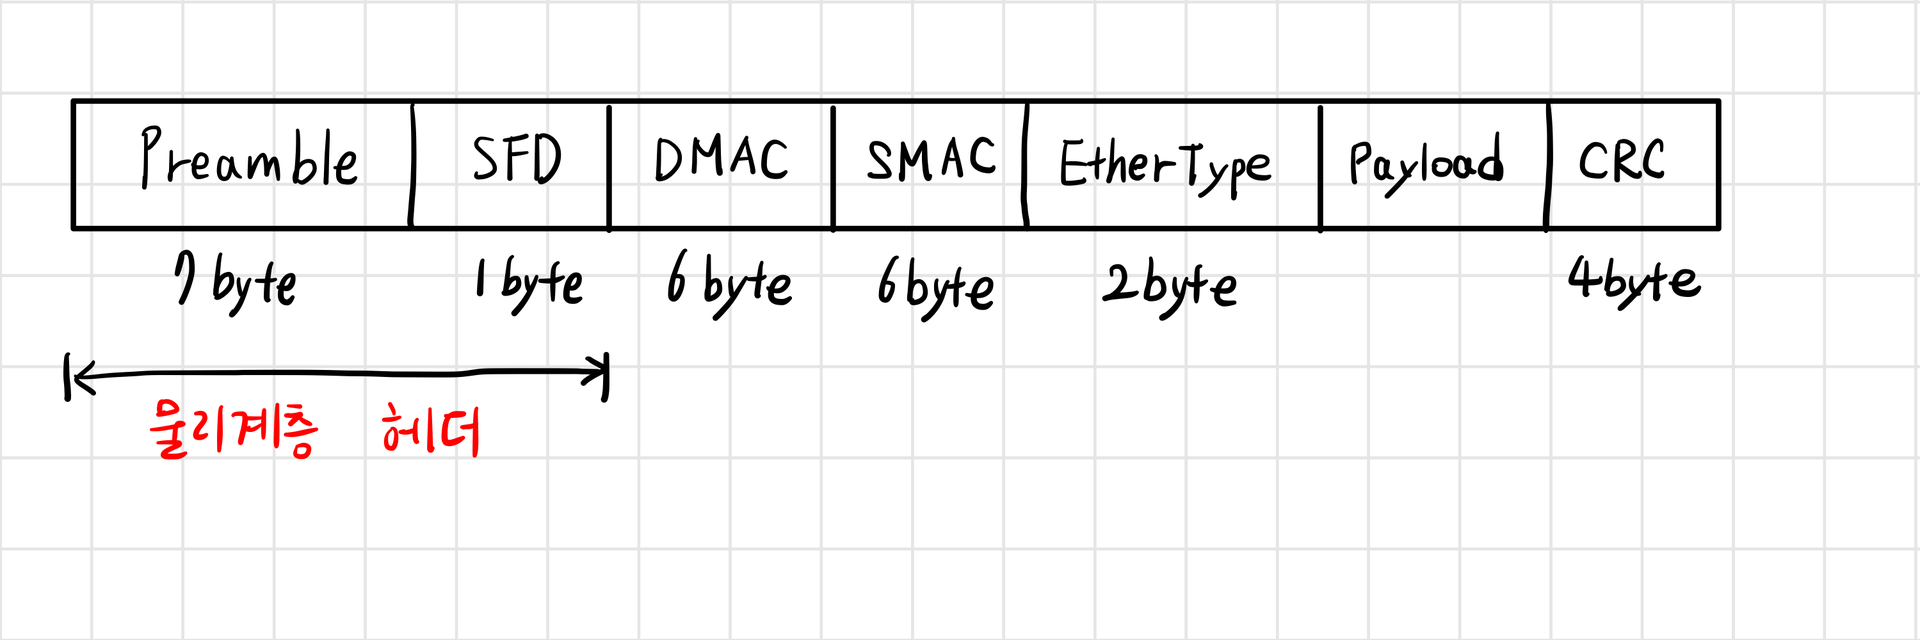 Preamble SFD DMAC SMAC EtherType Payload CRC
7 byte 1 byte 6 byte 6 byte 2 byte 4 byte
물리계층 헤더